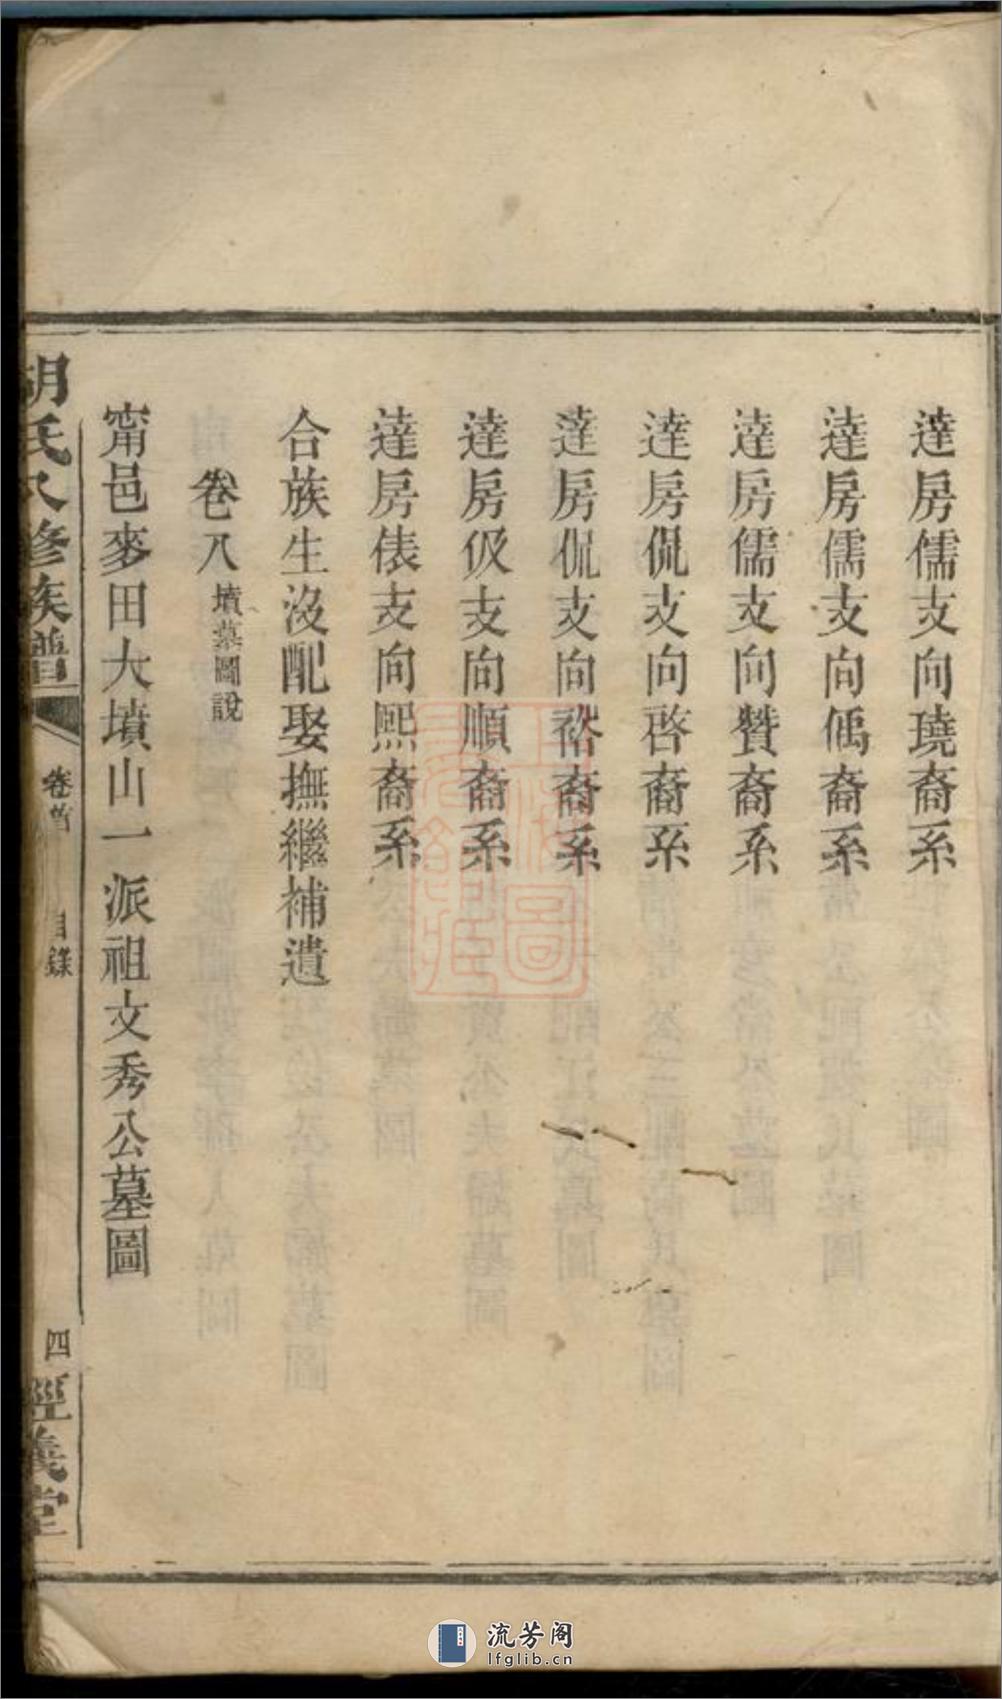 達房儒支向璄裔系
達房儒支向偊裔系
達房儒支向贊裔系
達房侃支向啓裔系
達房侃支向裕裔系
達房伋支向順裔系
達房俵支向熙裔系
合族生沒配娶撫繼補遺
卷八 墳墓圖說
甯邑麥田大墳山一派祖文秀公墓圖
胡氏八修族譜 卷首 目錄 四 經義堂
流芳阁
lfglib.cn